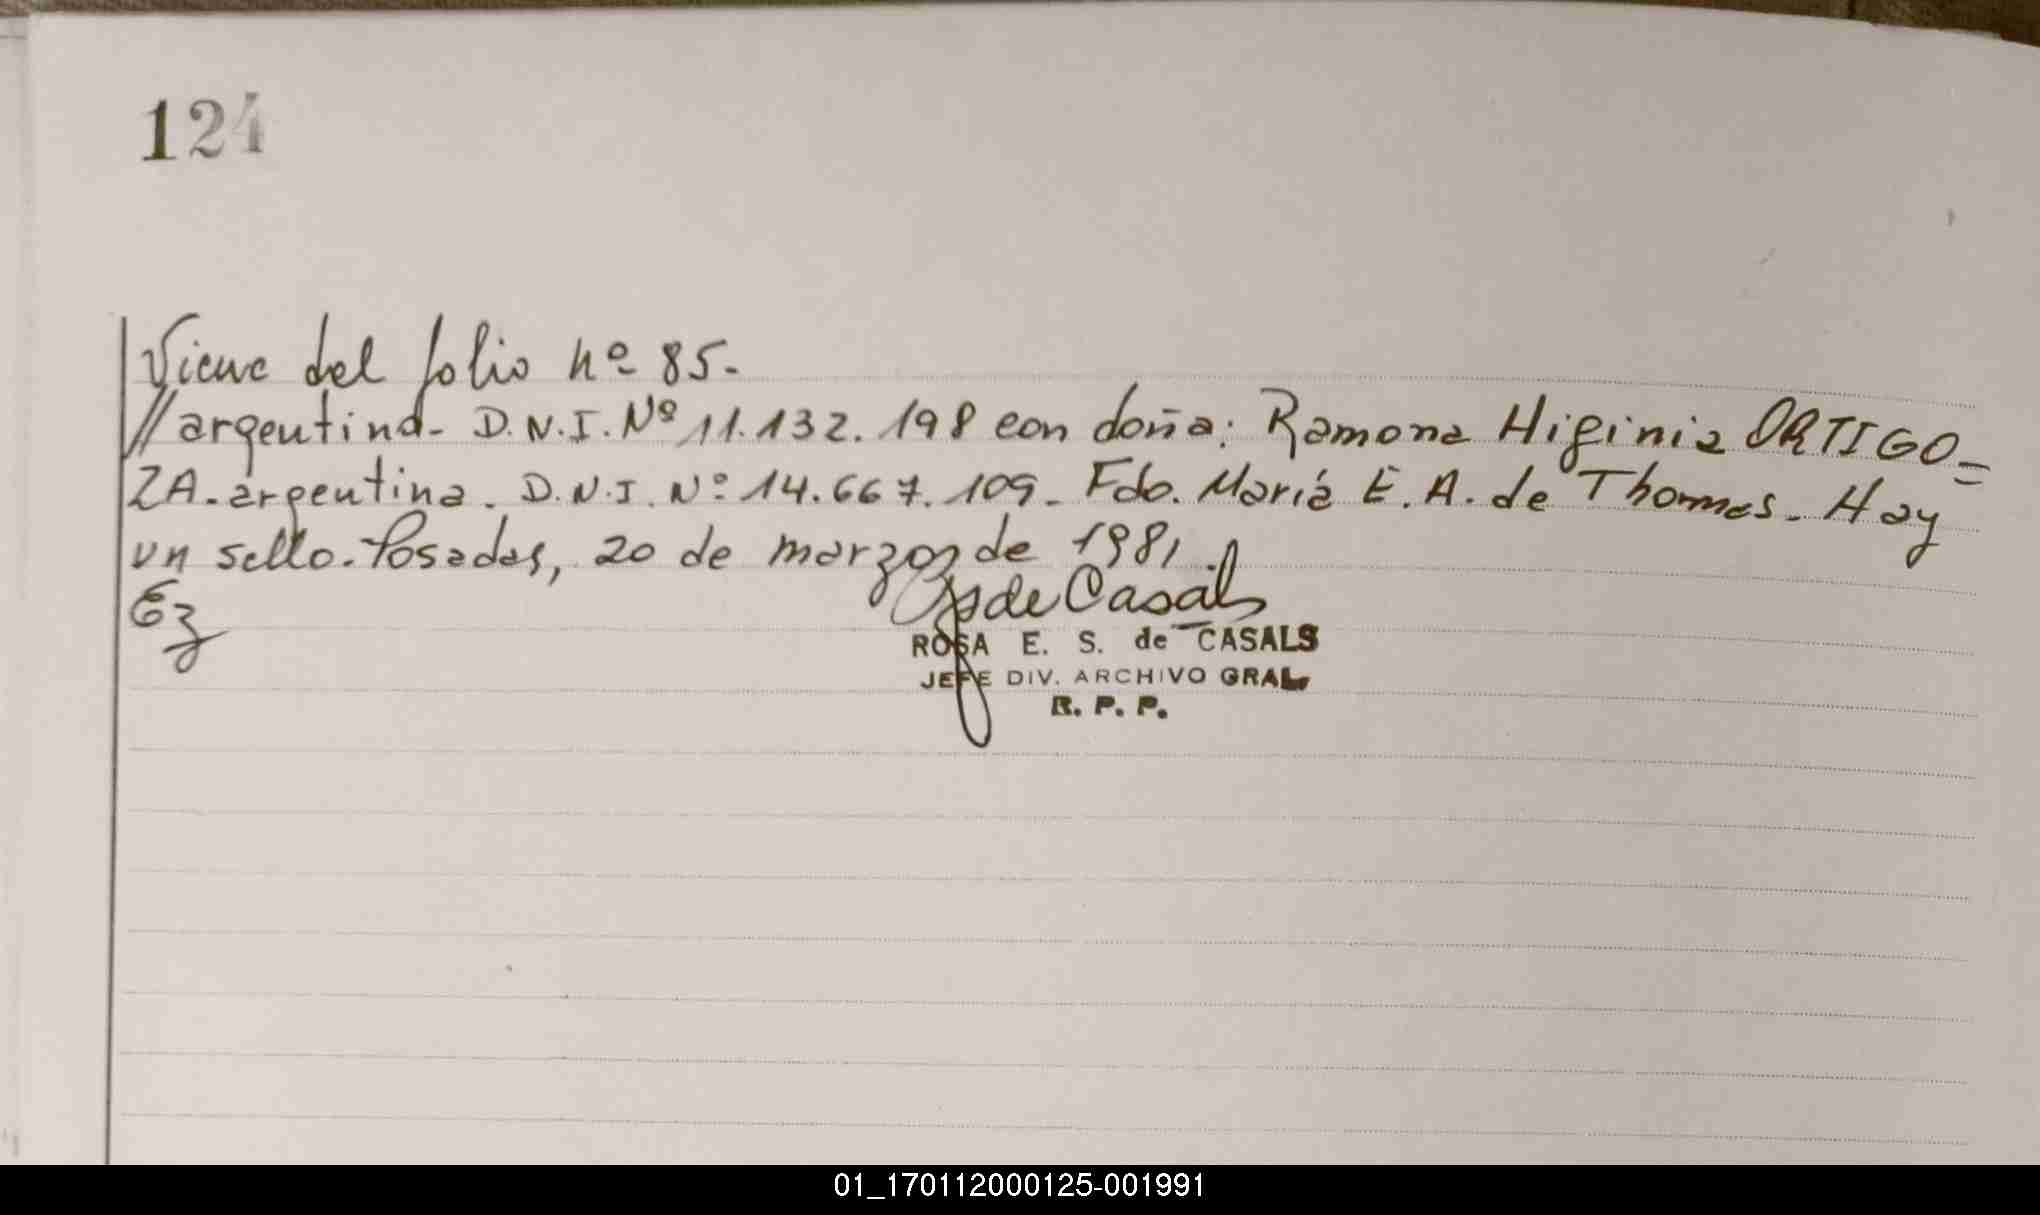 124
Viene del folio nº 85.
// argentina - D.N.I. Nº 11.132.198 con doña: Ramona Higinia ORTIGO=
ZA. argentina. D.N.I. Nº 14.667.109. Fdo. María E. A. de Thomas. Hay
un sello. Posadas, 20 de marzo de 1981.
Ez
de Casals
ROSA E. S. de CASALS
JEFE DIV. ARCHIVO GRAL.
R. P. P.
01_170112000125-001991